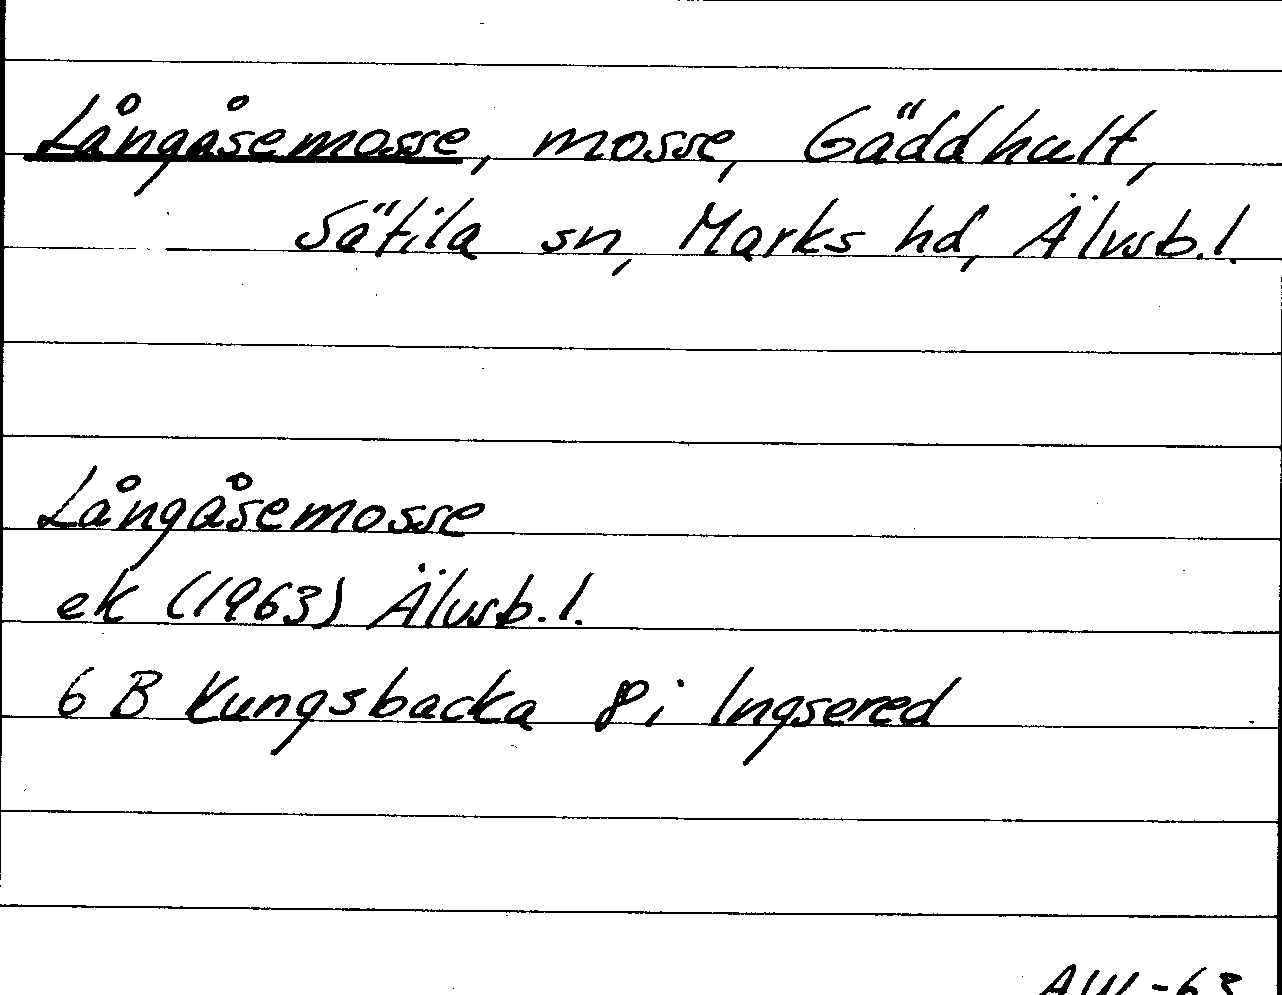 Långåsemosse, mosse, Gäddhult,
Sätila sn, Marks hd, Älvsb. l.
Långåsemosse
ek (1963) Älvsb. l.
6 B Kungsbacka 8 i Ingsered